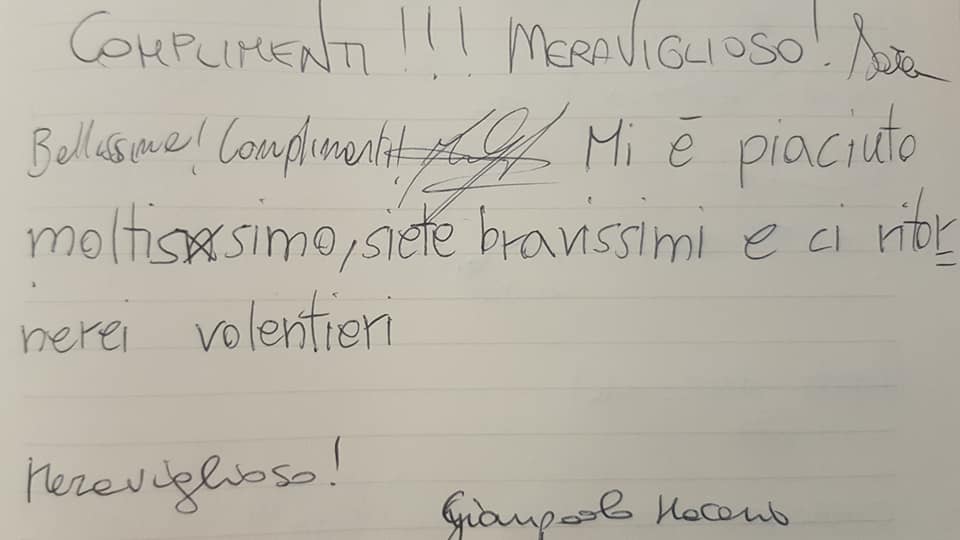 COMPLIMENTI !!! MERAVIGLIOSO!
Bellissime! Complimenti! Mi è piaciuto
moltissimo, siete bravissimi e ci ritor
nerei volentieri
Meraviglioso!
Gianpaolo